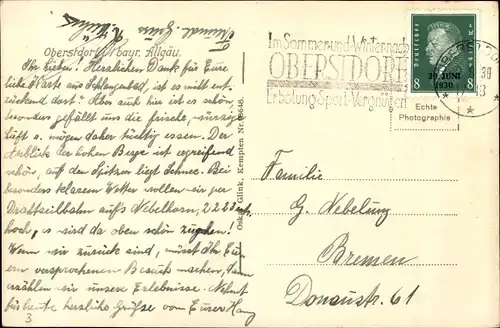 Oberstdorf / bayr. Allgäu.
Ihr Lieben! Herzlichen Dank für Eure
liebe Karte aus Schlangenbad, ist es nicht ent-
zückend dort? Aber auch hier ist es schön,
besonders gefällt uns die frische, würzige
Luft u. mögen daher tüchtig essen. Der
Anblick der hohen Berge ist ergreifend
schön, auf den Spitzen liegt Schnee. Bei
besonders klarem Wetter wollen wir per
Drahtseilbahn aufs Nebelhorn, 2223 mtr
hoch, es wird da oben schön zugehen!
Wenn wir zurück sind, müsst Ihr Eu-
ern versprochenen Besuch machen, dann
erzählen wir unsere Erlebnisse. Nehmt
für heute herzliche Grüße von Eurer
3
Oskar Glink, Kempten Nr.
Im Sommer und Winter nach
OBERSTDORF
Erholung Sport Vergnügen
Deutsches Reich
30. JUNI
1930
8 8
OBERSTDORF
Echte
Photographie
Familie
G. Nebelung
Bremen
Donaustr. 61